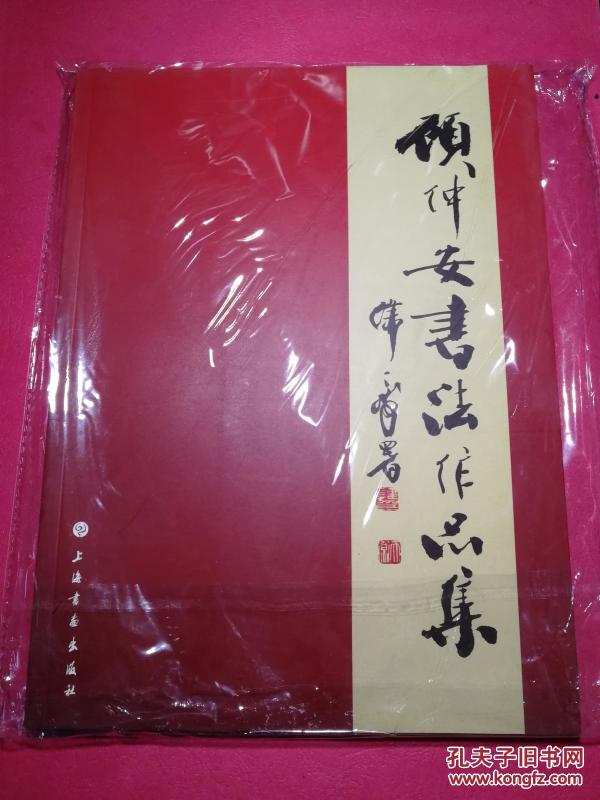 顾仲安书法作品集
署
上海书画出版社
孔夫子旧书网
www.kongfz.com